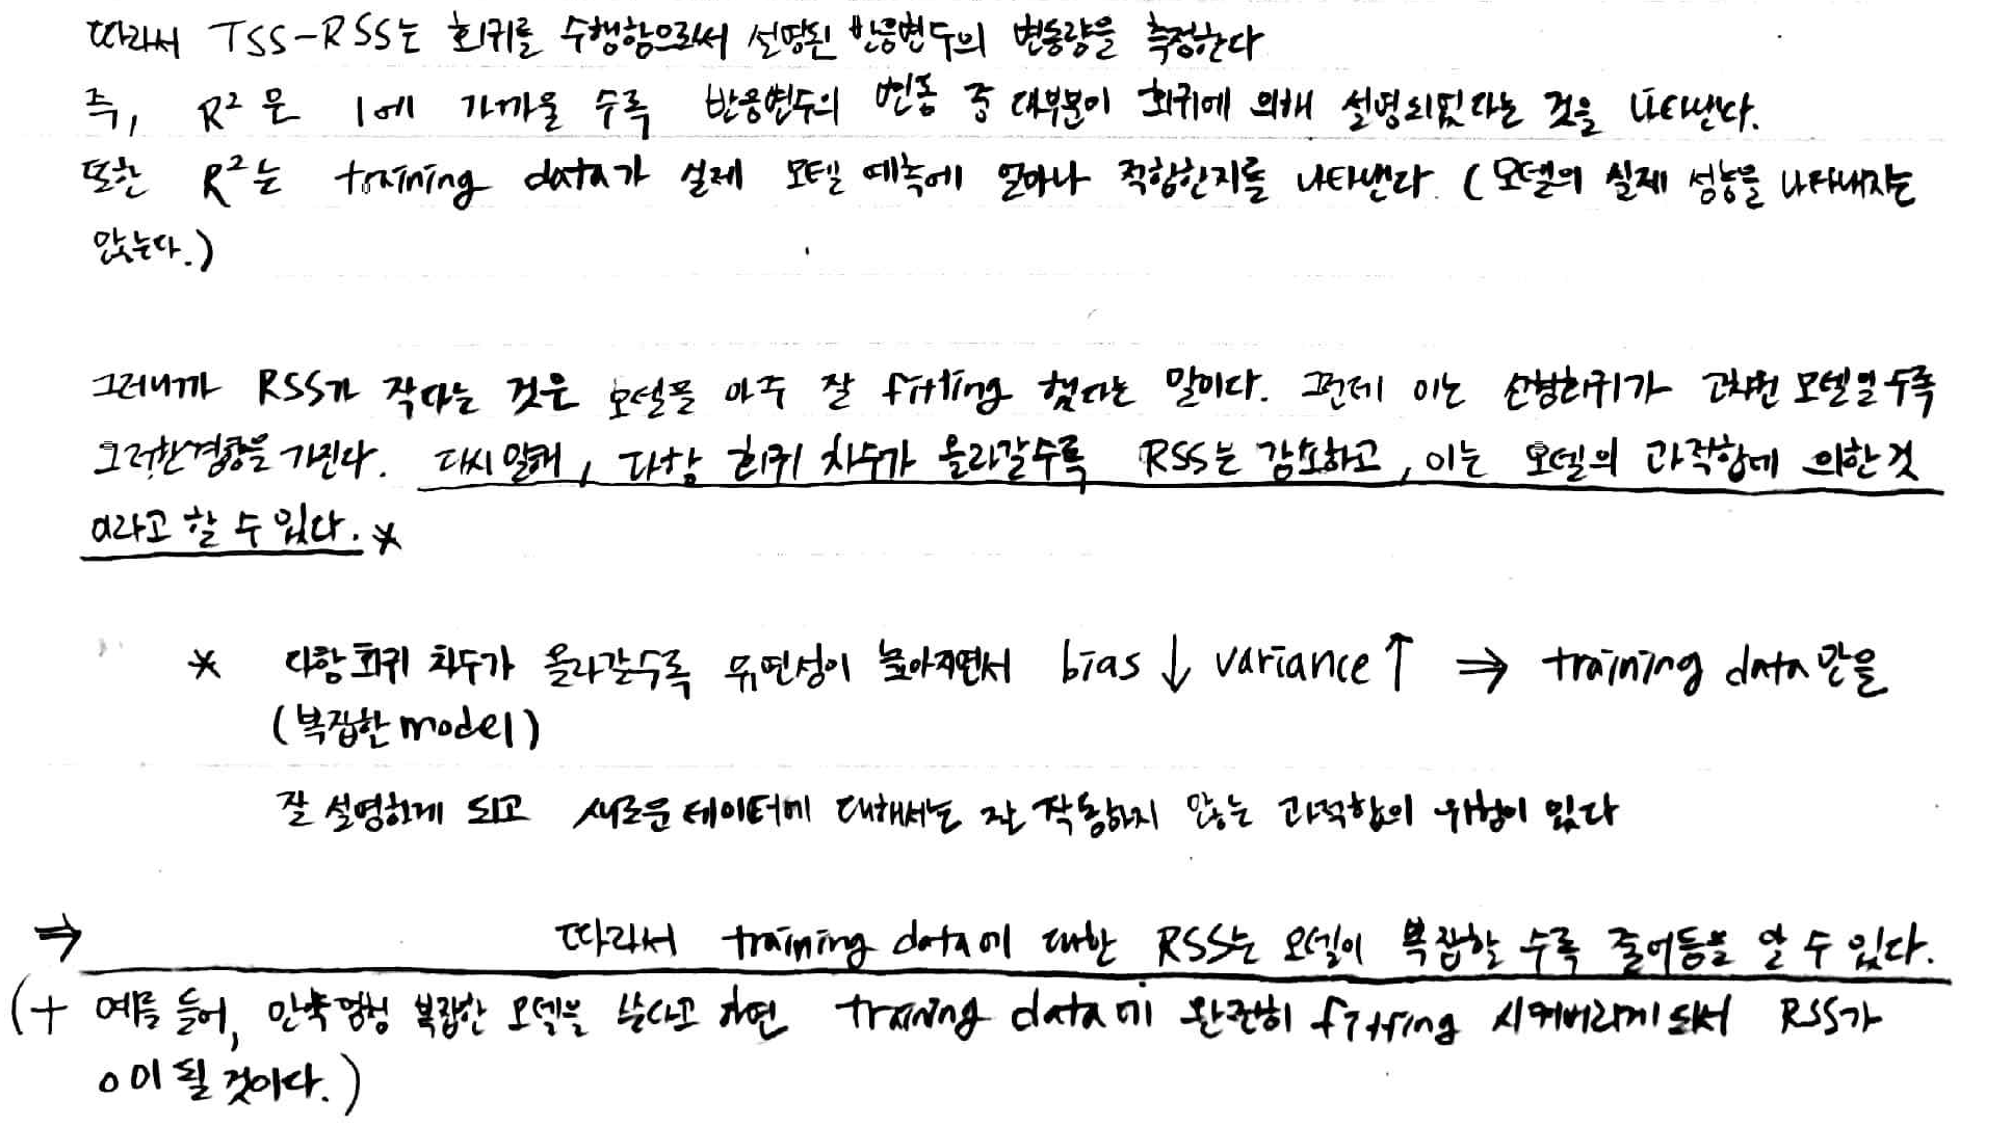 따라서 TSS-RSS는 회귀를 수행함으로써 설명된 반응변수의 변동량을 측정한다
즉, R² 은 1에 가까울 수록 반응변수의 변동 중 대부분이 회귀에 의해 설명되었다는 것을 나타낸다.
또한 R²는 training data가 실제 모델 예측에 얼마나 적합한지를 나타낸다. (모델의 실제 성능을 나타내지는
않는다.)
그러니까 RSS가 작다는 것은 모델을 아주 잘 fitting 했다는 말이다. 그런데 이는 선형회귀가 고차원 모델일수록
그러한경향을 가진다. 다시 말해, 다항 회귀 차수가 올라갈수록 RSS는 감소하고, 이는 모델의 과적합에 의한것
이라고 할 수 있다. *
* 다항회귀 차수가 올라갈수록 유연성이 높아지면서 bias ↓ variance ↑ ⇒ training data 만을
(복잡한 model)
잘 설명하게 되고 새로운 데이터에 대해서는 잘 작동하지 않는 과적합의 위험이 있다
⇒ 따라서 training data에 대한 RSS는 모델이 복잡할 수록 줄어듬을 알 수 있다.
(+ 예를 들어, 만약 엄청 복잡한 모델을 쓴다고 하면 training data에 완전히 fitting 시켜버리게되서 RSS가
0이 될 것이다.)